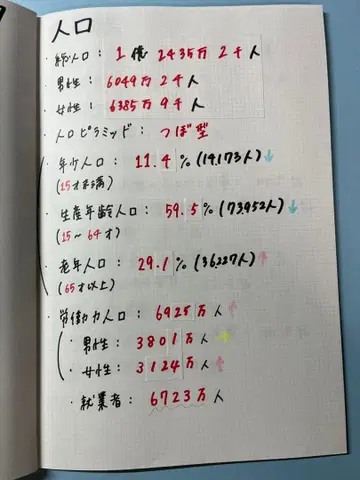 人口
・総人口: 1億2435万2千人
・男性: 6049万2千人
・女性: 6385万9千人
・人口ピラミッド: つぼ型
・年少人口: 11.4%(14,173人)↓
(15才未満)
・生産年齢人口: 59.5%(73,952人)↓
(15~64才)
・老年人口: 29.1%(36,227人)↑
(65才以上)
・労働力人口: 6925万人↑
・男性: 3801万人
・女性: 3124万人↑
・就業者: 6723万人